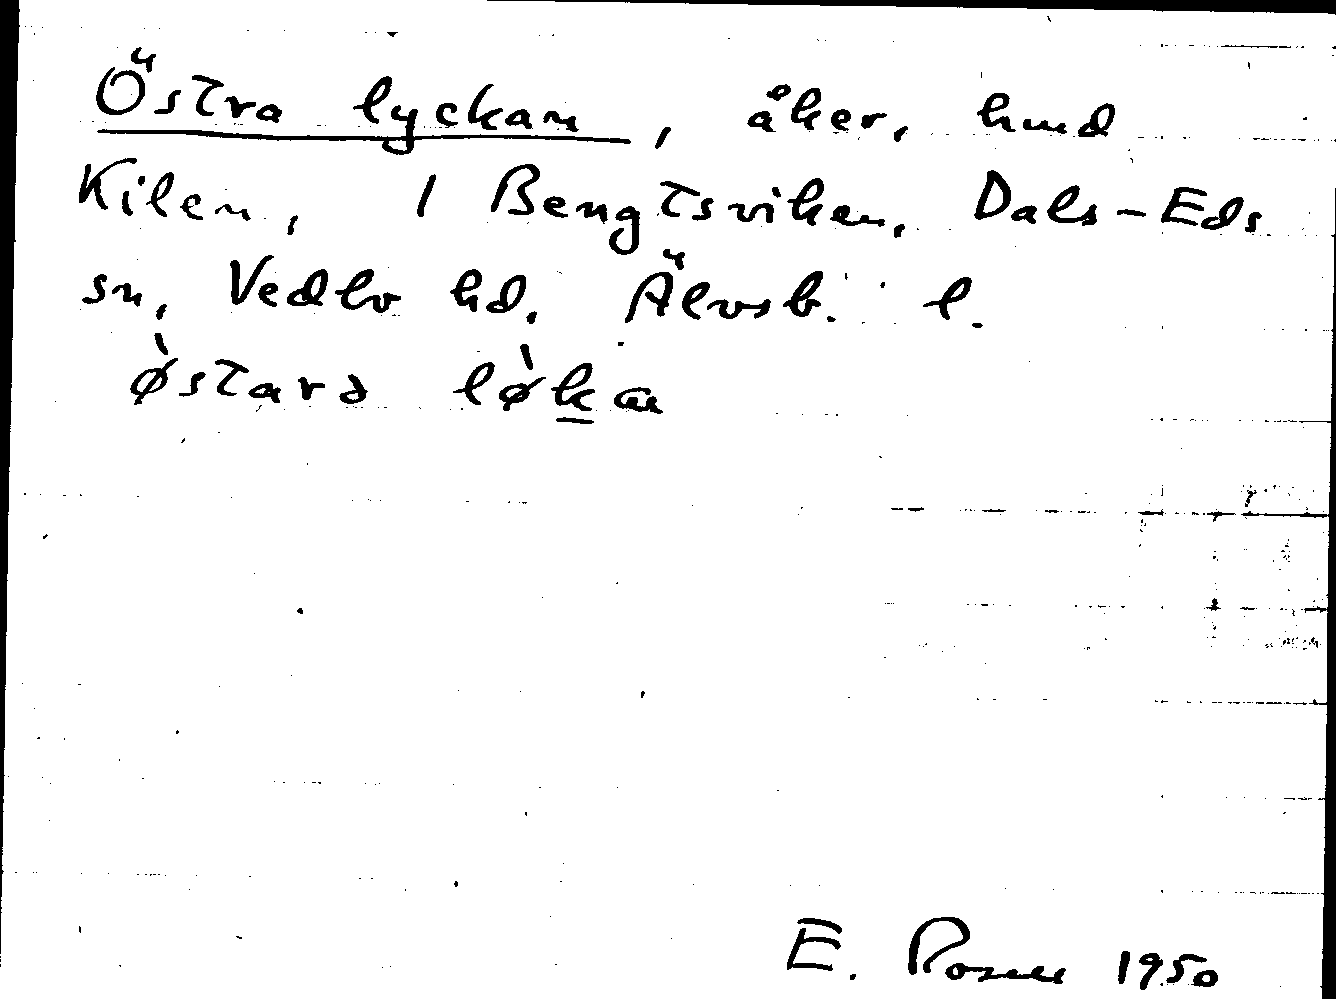 Östra lyckan, åker, hmd
Kilen, 1 Bengtsviken, Dals-Eds
sn, Vedbo hd. Älvsb. l.
ø̀starə lø̀k̲an
E. Rosell 1950